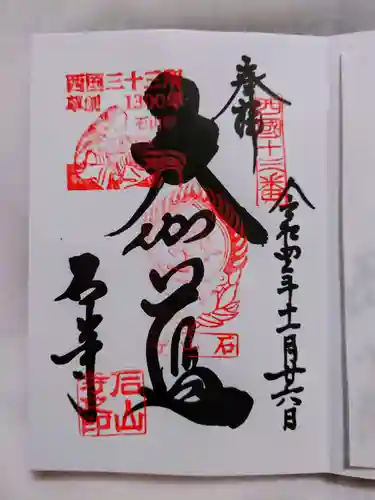 奉拝
西國十三番
令和四年十一月廿六日
大伽藍
西国三十三所
草創 1300年
石山寺
石
石山寺